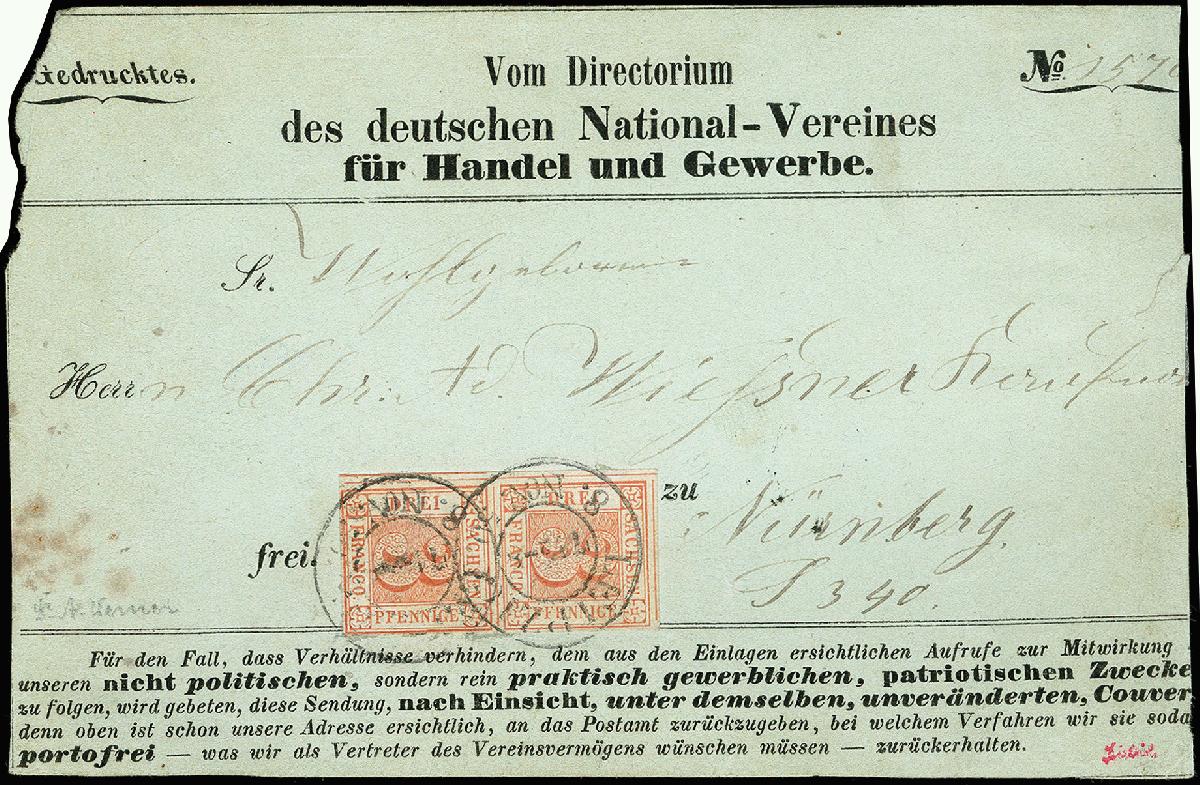 Gedrucktes.
Vom Directorium
No. 1570
des deutschen National-Vereines
für Handel und Gewerbe.
Sr. Wohlgeboren
Herrn Chr. Ad. Wießner Kaufman
zu
Nürnberg.
frei.
S 340.
DREI
FRANCO
SACHSEN
3
PFENNIGE
DREI
FRANCO
SACHSEN
3
PFENNIGE
LEIPZIG
8 NOV
Für den Fall, dass Verhältnisse verhindern, dem aus den Einlagen ersichtlichen Aufrufe zur Mitwirkung
unseren nicht politischen, sondern rein praktisch gewerblichen, patriotischen Zwecke
zu folgen, wird gebeten, diese Sendung, nach Einsicht, unter demselben, unveränderten, Couver
denn oben ist schon unsere Adresse ersichtlich, an das Postamt zurückzugeben, bei welchem Verfahren wir sie soda
portofrei — was wir als Vertreter des Vereinsvermögens wünschen müssen — zurückerhalten.